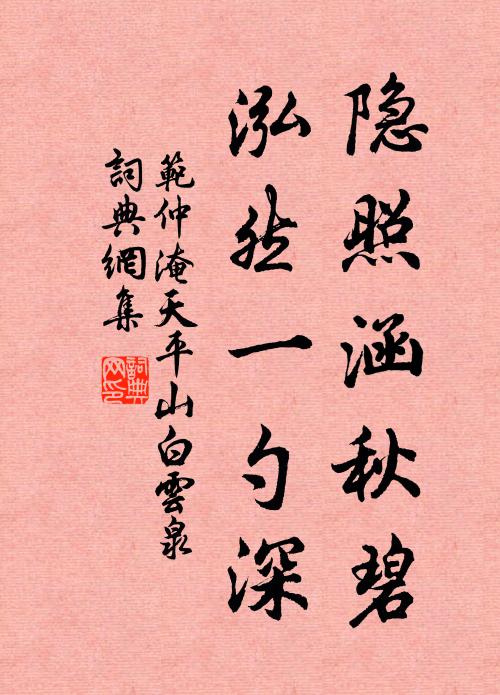 隐照涵秋碧
泓然一勺深
範仲淹天平山白雲泉
詞典網集
詞典网印